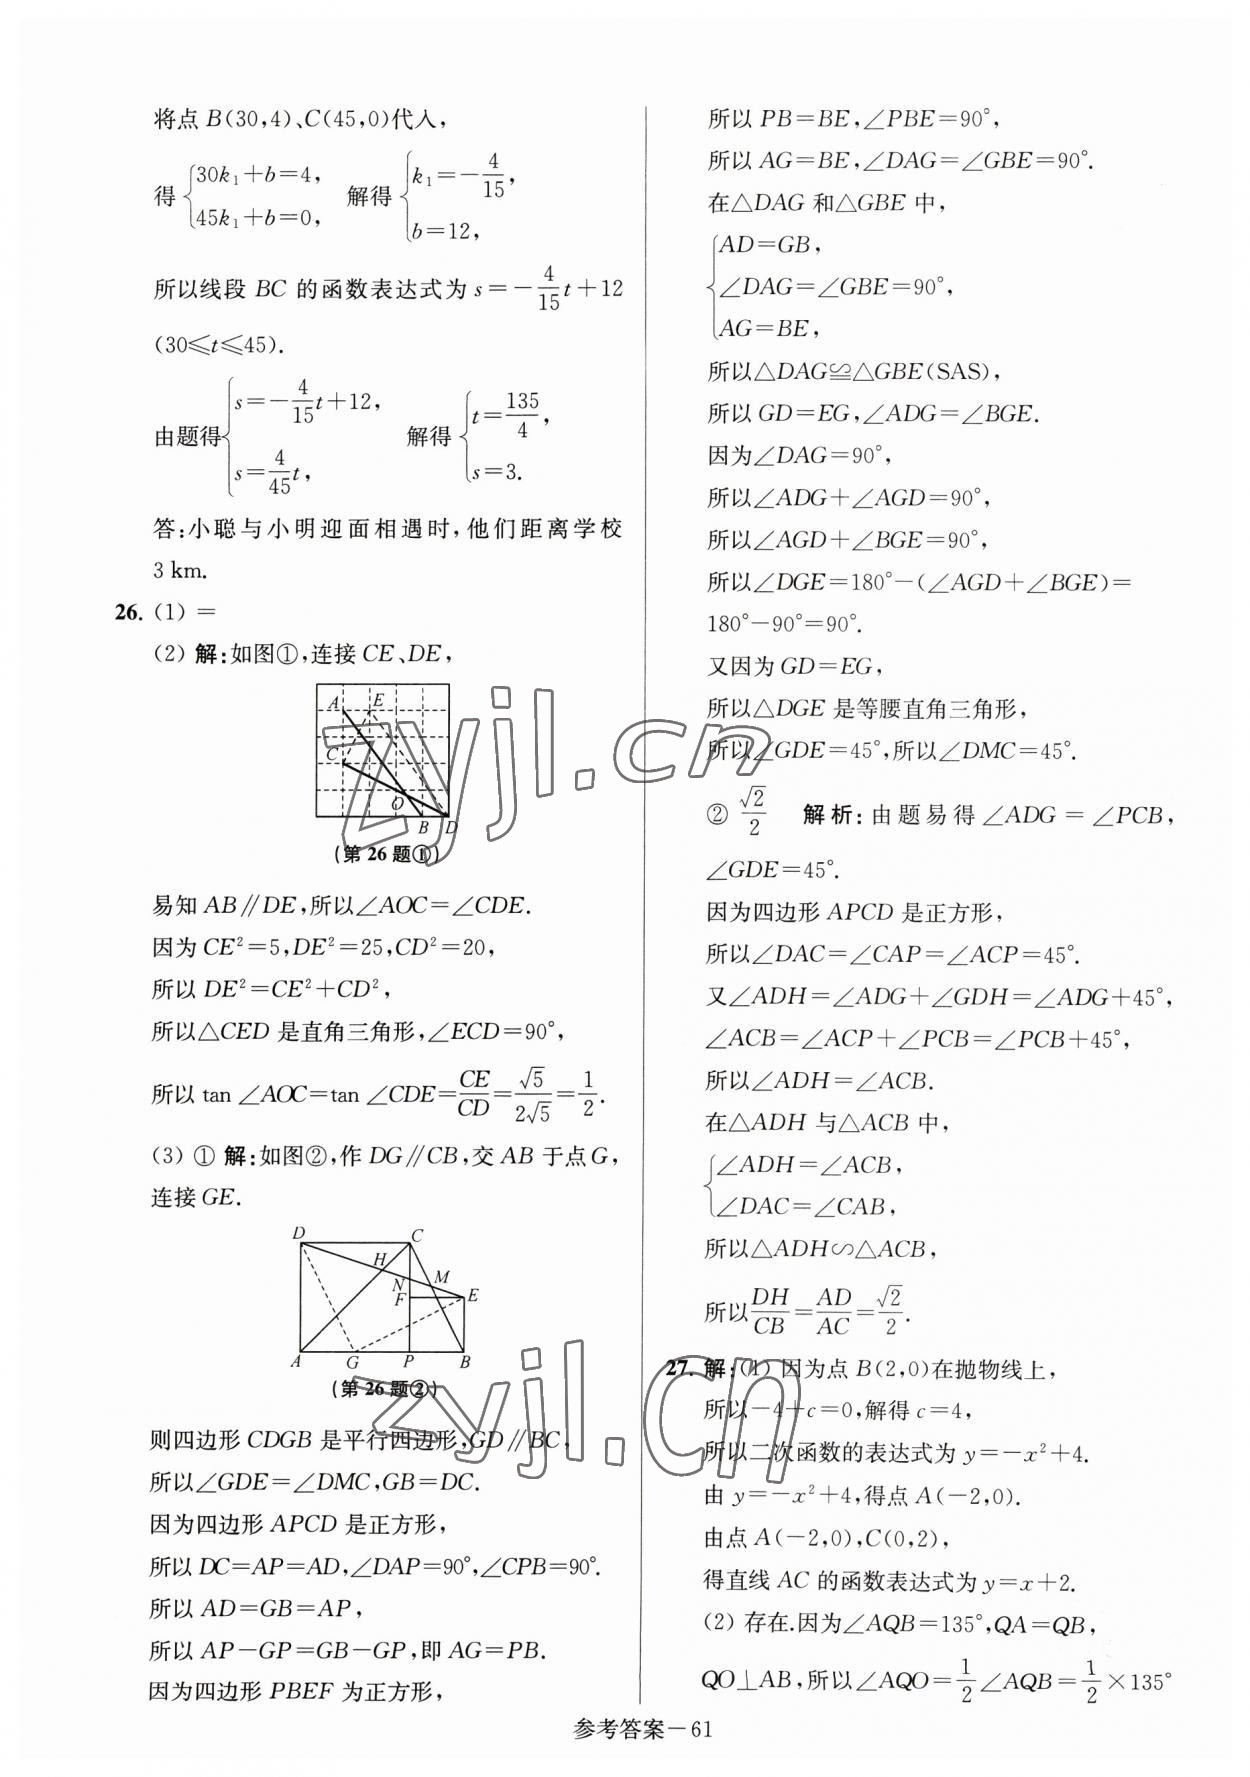 将点 B(30,4)、C(45,0)代入，
得 {30k₁+b=4, 45k₁+b=0, 解得 {k₁=-4/15, b=12,
所以线段 BC 的函数表达式为 s=-4/15 t+12
(30≤t≤45).
由题得 {s=-4/15 t+12, s=4/45 t, 解得 {t=135/4, s=3.
答:小聪与小明迎面相遇时,他们距离学校
3 km.
26. (1) =
(2) 解:如图①,连接 CE、DE,
A E
C
O
B D
(第 26 题①)
易知 AB∥DE,所以∠AOC=∠CDE.
因为 CE²=5,DE²=25,CD²=20,
所以 DE²=CE²+CD²,
所以△CED 是直角三角形,∠ECD=90°,
所以 tan ∠AOC=tan ∠CDE=CE/CD=√5/2√5=1/2.
(3) ① 解:如图②,作 DG∥CB,交 AB 于点 G,
连接 GE.
D C
H
N M
F E
A G P B
(第 26 题②)
则四边形 CDGB 是平行四边形,GD∥BC,
所以∠GDE=∠DMC,GB=DC.
因为四边形 APCD 是正方形,
所以 DC=AP=AD,∠DAP=90°,∠CPB=90°.
所以 AD=GB=AP,
所以 AP-GP=GB-GP,即 AG=PB.
因为四边形 PBEF 为正方形,
所以 PB=BE,∠PBE=90°,
所以 AG=BE,∠DAG=∠GBE=90°.
在△DAG 和△GBE 中,
{AD=GB,
∠DAG=∠GBE=90°,
AG=BE,
所以△DAG≌△GBE(SAS),
所以 GD=EG,∠ADG=∠BGE.
因为∠DAG=90°,
所以∠ADG+∠AGD=90°,
所以∠AGD+∠BGE=90°,
所以∠DGE=180°-(∠AGD+∠BGE)=
180°-90°=90°.
又因为 GD=EG,
所以△DGE 是等腰直角三角形,
所以∠GDE=45°,所以∠DMC=45°.
② √2/2 解析:由题易得∠ADG=∠PCB,
∠GDE=45°.
因为四边形 APCD 是正方形,
所以∠DAC=∠CAP=∠ACP=45°.
又∠ADH=∠ADG+∠GDH=∠ADG+45°,
∠ACB=∠ACP+∠PCB=∠PCB+45°,
所以∠ADH=∠ACB.
在△ADH 与△ACB 中,
{∠ADH=∠ACB,
∠DAC=∠CAB,
所以△ADH∽△ACB,
所以 DH/CB=AD/AC=√2/2.
27. 解:(1) 因为点 B(2,0)在抛物线上,
所以-4+c=0,解得 c=4,
所以二次函数的表达式为 y=-x²+4.
由 y=-x²+4,得点 A(-2,0).
由点 A(-2,0),C(0,2),
得直线 AC 的函数表达式为 y=x+2.
(2) 存在.因为∠AQB=135°,QA=QB,
QO⊥AB,所以∠AQO=1/2∠AQB=1/2×135°
参考答案-61
zyjl.cn
zyjl.cn